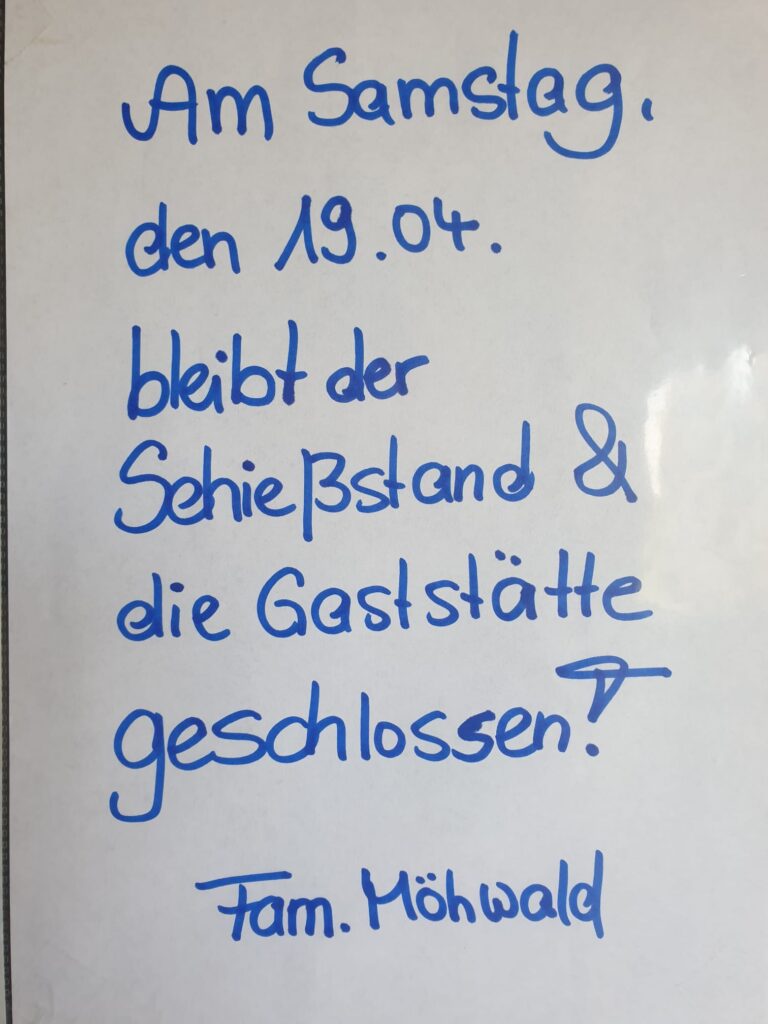 Am Samstag,
den 19.04.
bleibt der
Schießstand &
die Gaststätte
geschlossen!
Fam. Möhwald